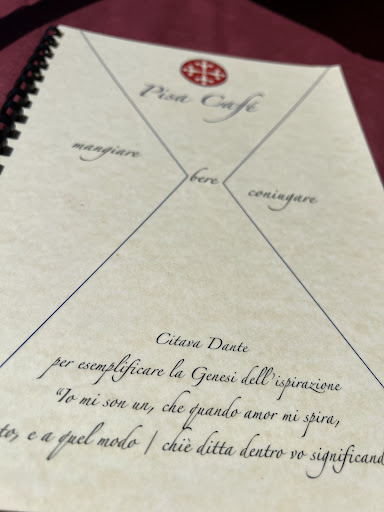 Pisa Café
mangiare
bere
coniugare
Citava Dante
per esemplificare la Genesi dell'ispirazione
"Io mi son un, che quando amor mi spira,
e a quel modo | chiè ditta dentro vo